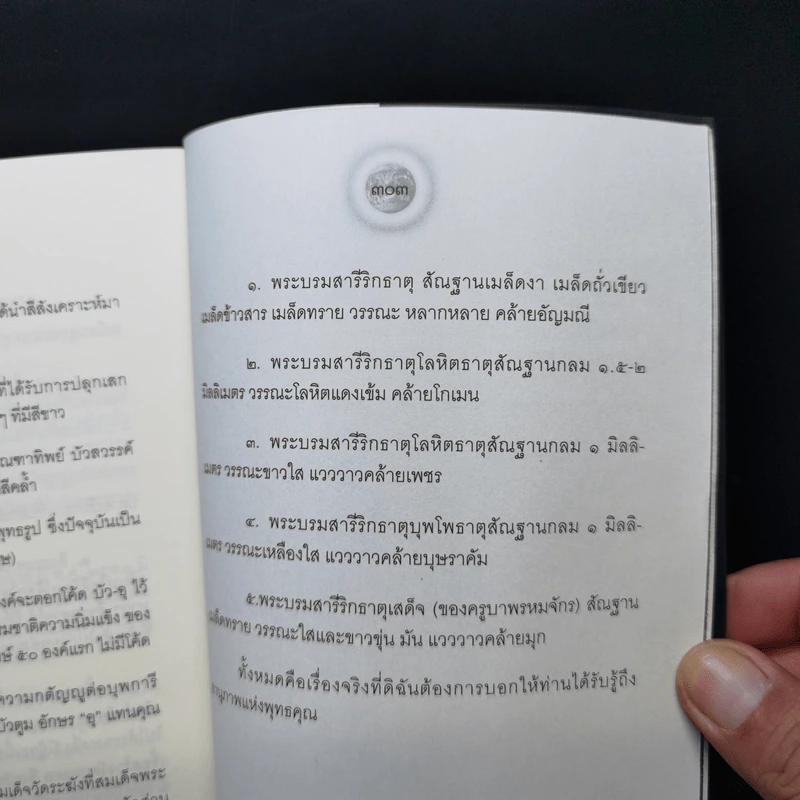 ได้นำสีสังเคราะห์มา
ที่ได้รับการปลุกเสก
ๆ ที่มีสีขาว
ณฑาทิพย์ บัวสวรรค์
สีคล้ำ
พุทธรูป ซึ่งปัจจุบันเป็น
งค์จะตอกโค้ด บัว-อุ ไว้
รมชาติความนิ่มแข็ง ของ
๕๐ องค์แรก ไม่มีโค้ด
ความกตัญญูต่อบุพการี
บัวตูม อักษร "อุ" แทนคุณ
มเด็จวัดระฆังที่สมเด็จพระ
๓๐๓
๑. พระบรมสารีริกธาตุ สัณฐานเมล็ดงา เมล็ดถั่วเขียว
เมล็ดข้าวสาร เมล็ดทราย วรรณะ หลากหลาย คล้ายอัญมณี
๒. พระบรมสารีริกธาตุโลหิตธาตุสัณฐานกลม ๑.๕-๒
มิลลิเมตร วรรณะโลหิตแดงเข้ม คล้ายโกเมน
๓. พระบรมสารีริกธาตุโลหิตธาตุสัณฐานกลม ๑ มิลลิ-
เมตร วรรณะขาวใส แวววาวคล้ายเพชร
๔. พระบรมสารีริกธาตุบุพโพธาตุสัณฐานกลม ๑ มิลลิ-
เมตร วรรณะเหลืองใส แวววาวคล้ายบุษราคัม
๕.พระบรมสารีริกธาตุเสด็จ (ของครูบาพรหมจักร) สัณฐาน
เมล็ดทราย วรรณะใสและขาวขุ่น มัน แวววาวคล้ายมุก
ทั้งหมดคือเรื่องจริงที่ดิฉันต้องการบอกให้ท่านได้รับรู้ถึง
อานุภาพแห่งพุทธคุณ